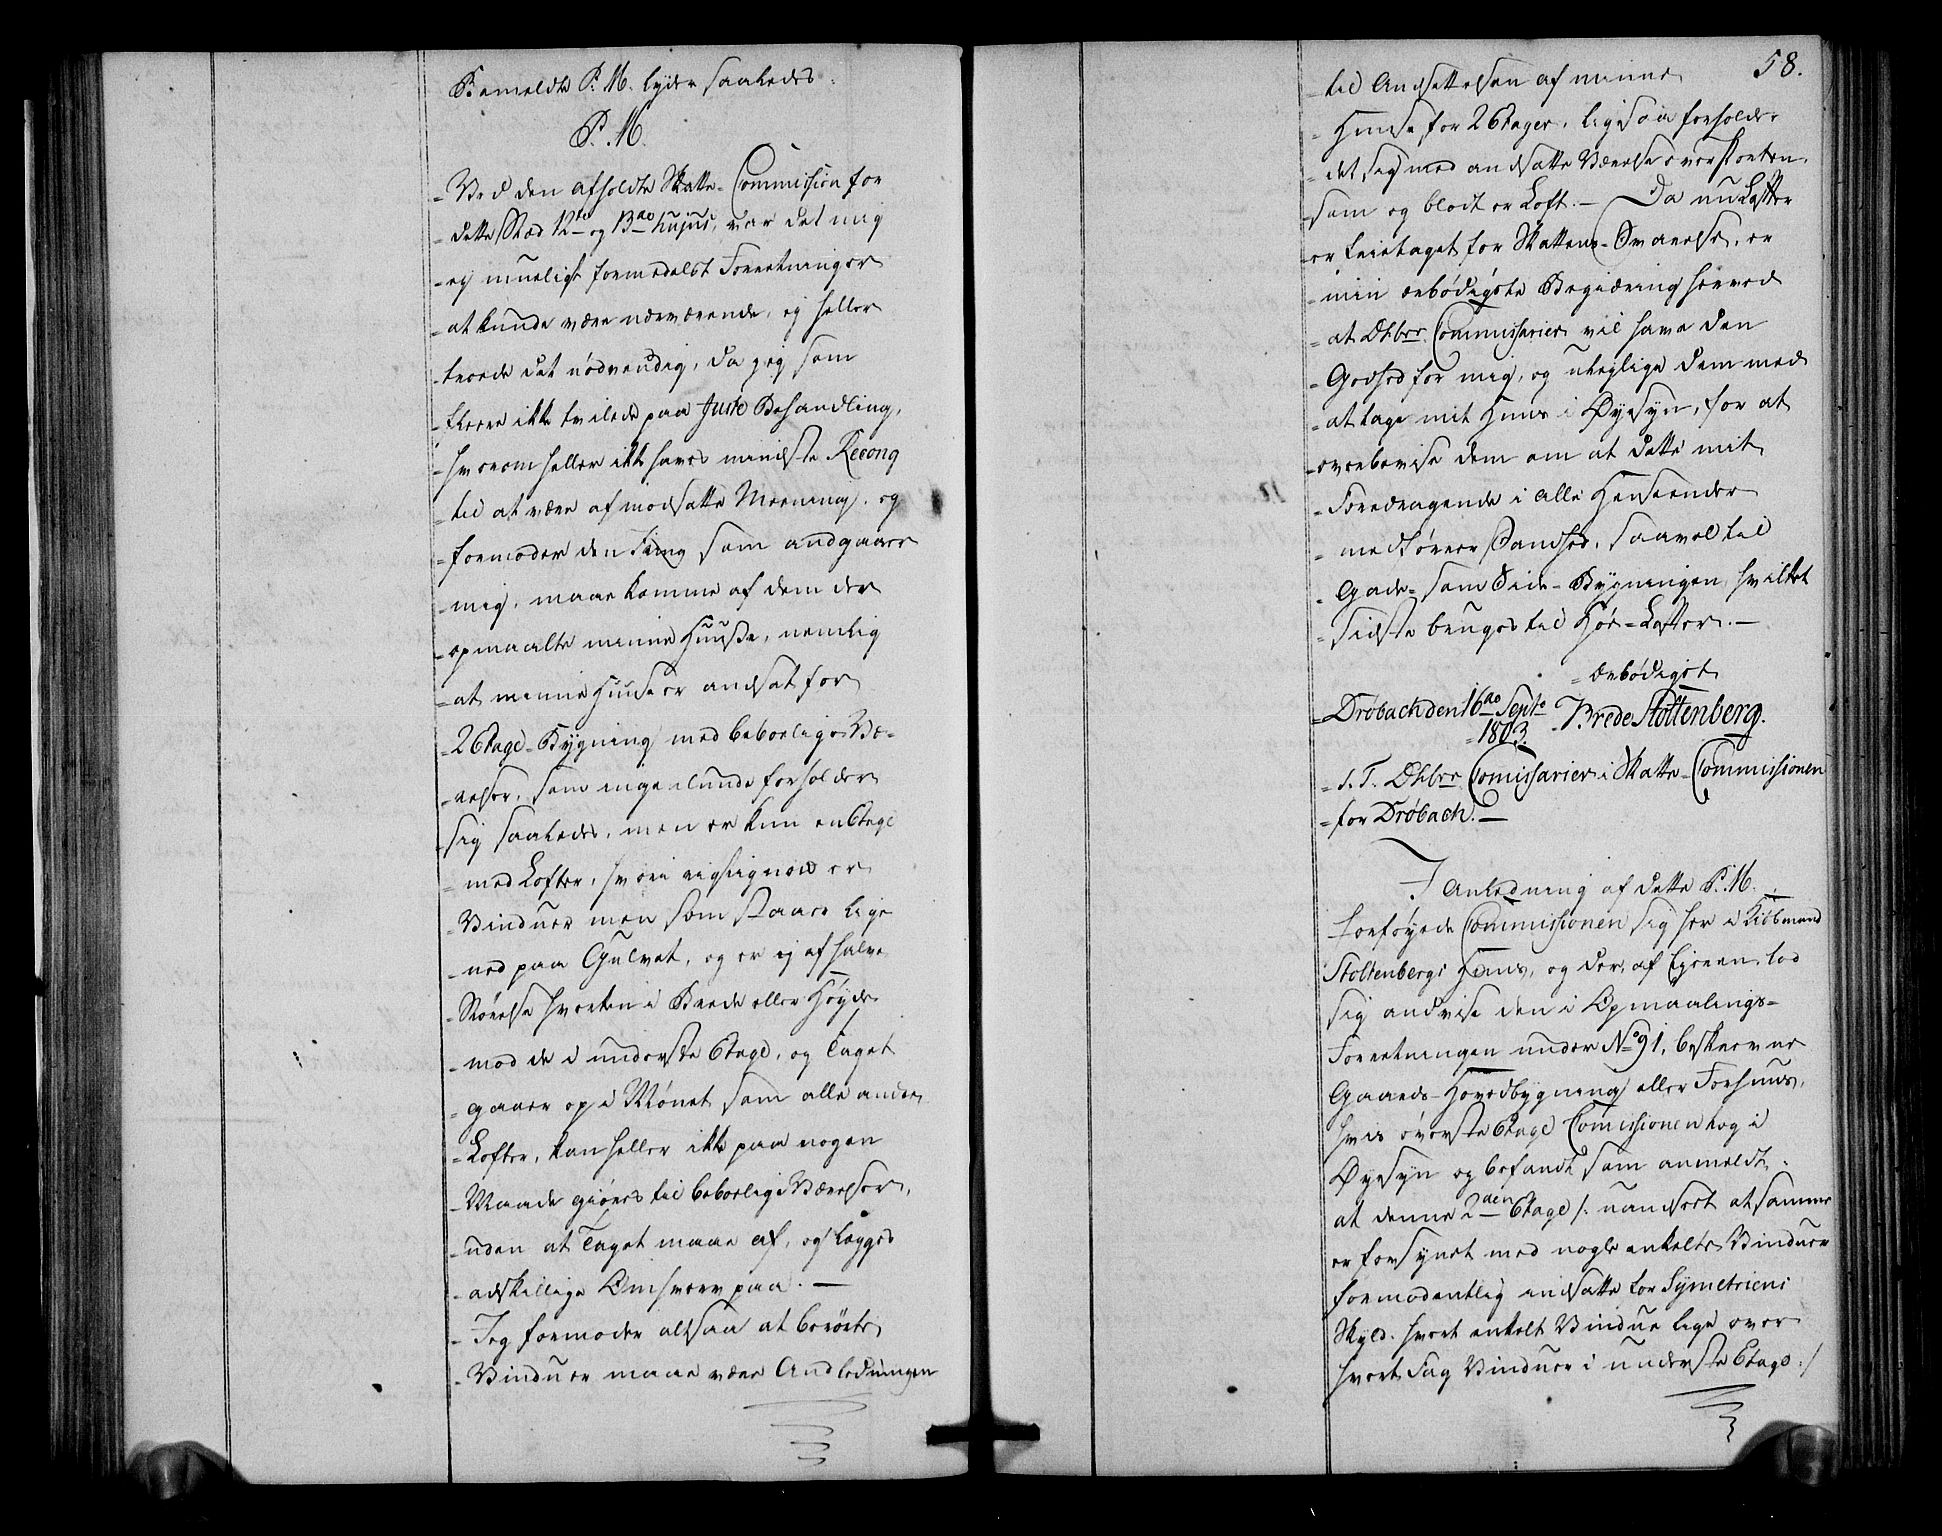 Bemeldte P. M. lyder saaledes:
P. M.
- Ved den afholdte Skatte-Commission for
- dette Stæd 12te og 13de hujus, var det mig
- ej mueligt formedelst Forretninger
- at kunde være nærværende, ej heller
- troede det nødvendig, da jeg som
- fleere ikke tvilede paa Juste Behandling,
- hvorom heller ikke haves mindste
- til at være af modsatte Meening, og
- formoder den Ting som andgaaer
- mig, maae komme af dem der
- opmaalte mine Huuse, nemlig
- at mine Huuse er andsat for
- 2 Etage-Bygning med beboelige Væ-
- relser, som ingenlunde forholder
- sig saaledes, men er kun en Etage
- med Lofter, hvori rigtignok er
- Vinduer men som staaer lige
- ned paa Gulvet, og er ej af halve
- Størelse hverken i Brede eller Høyde
- mod de i underste Etage, og Taget
- gaaer op i Mønet som alle andre
- Lofter, kan heller ikke paa nogen
- Maade giøres til beboelige Værelser,
- uden at Taget maae af, og lægges
- adskillige Omhverv paa. —
- Jeg formoder altsaa at berørte
- Vinduer maae være Andledningen
58.
- til Andsættelsen af mine
- Huuse for 2 Etager, ligesaa forholder
- det sig med andsatte Værelse over Porten,
- som og blodt er Loft. — Da nu Lofter
- er frietaget for Skattens-Svarelse, er
- min ærbødigste Begiæring herved
- at Dhrr. Commissarier vil have den
- Godhed for mig, og uleylige dem med
- at tage mit Huus i Øyesyn, for at
- overbevise dem om at dette mit
- Foredragende i alle Henseender
- medfører Sandhed, saavel til
- Gade- som Side-Bygningen, hvilket
- sidste bruges til Høe-Lofter. —
- ærbødigst
- Drøbach den 16de Septr
- 1803. - Brede Stoltenberg.
- S. T. Dhrr Comissarier i Skatte-Commissionen
- for Drøbach. —
I Anledning af dette P. M.
forføyede Commissionen sig her i Kiøbmand
Stoltenbergs Huus, og der, af Ejeren lod
sig andvise den i Opmaalings-
Forretningen under No 91, beskrevne
Gaards-Hovedbygning eller Forhuus,
hvis øverste Etage Comissionen tog i
Øyesyn og befandt som anmeldt,
at denne 2den Etage /: uandseet at samme
er forsynet med nogle enkelte Vinduer
formodentlig indsatte for Symetriens
Skyld, hvert enkelt Vindue lige over
hvert Fag Vinduer i underste Etage :/